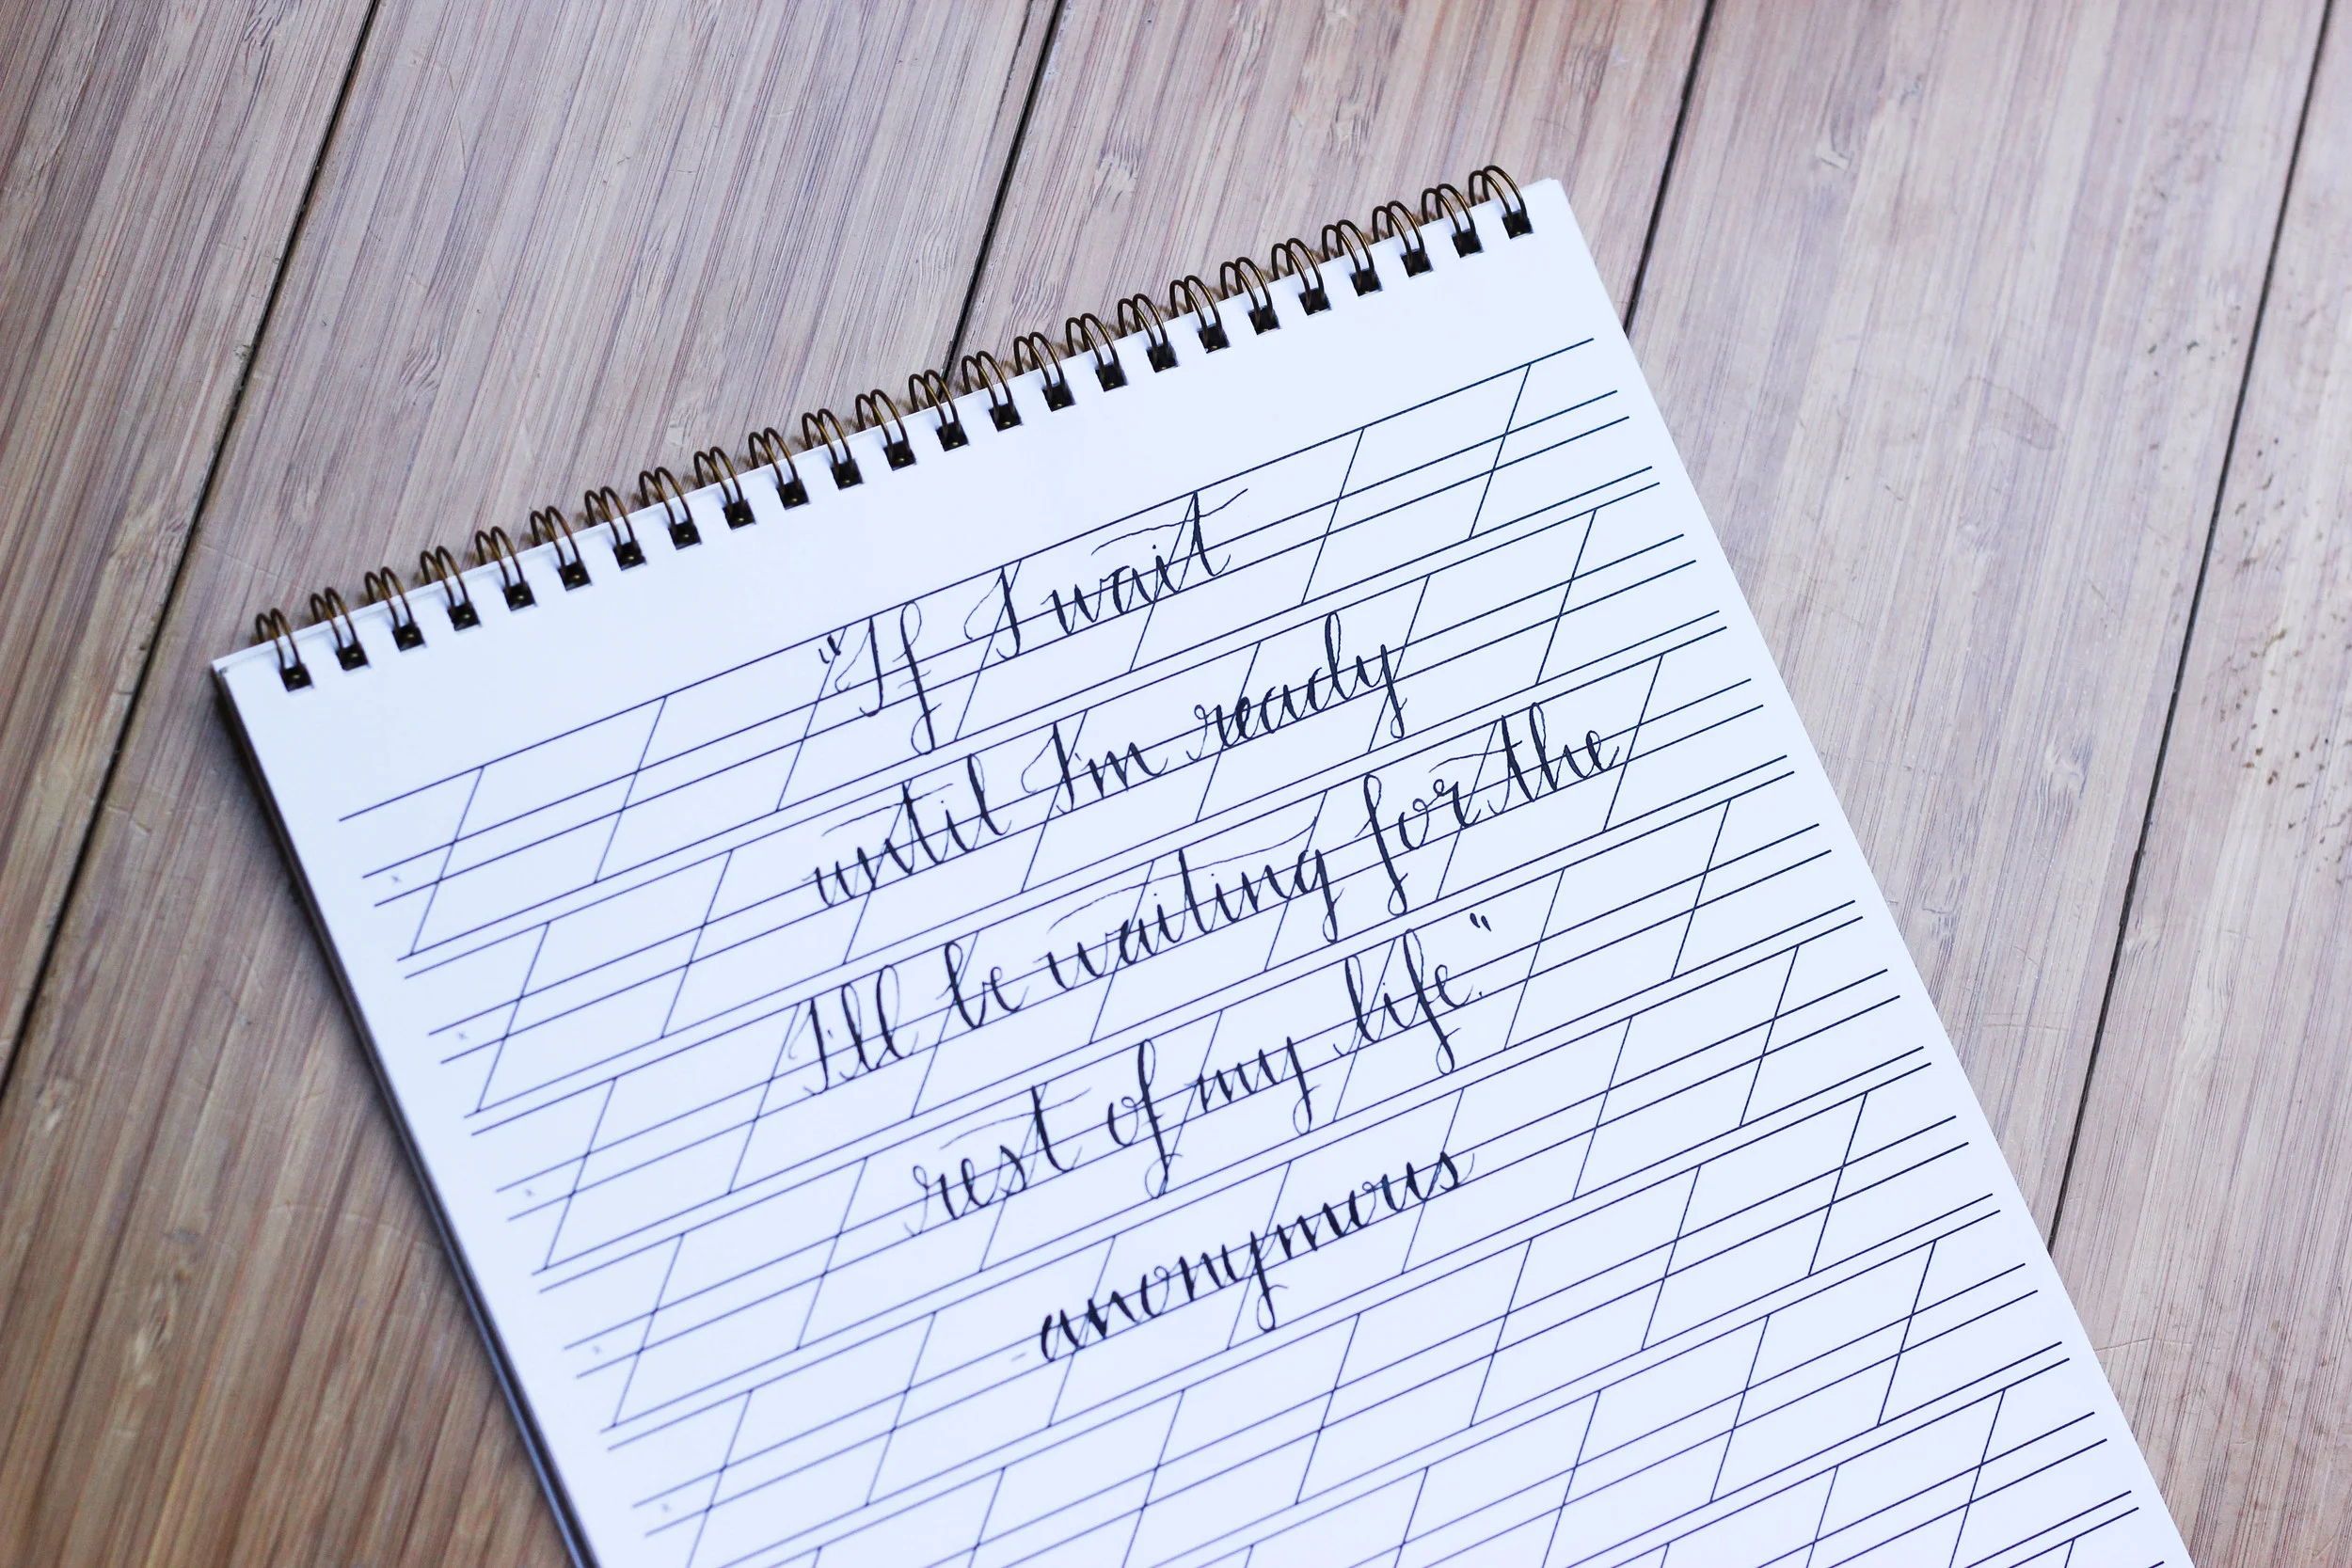 "If I wait
until I'm ready
I'll be waiting for the
rest of my life."
- anonymous